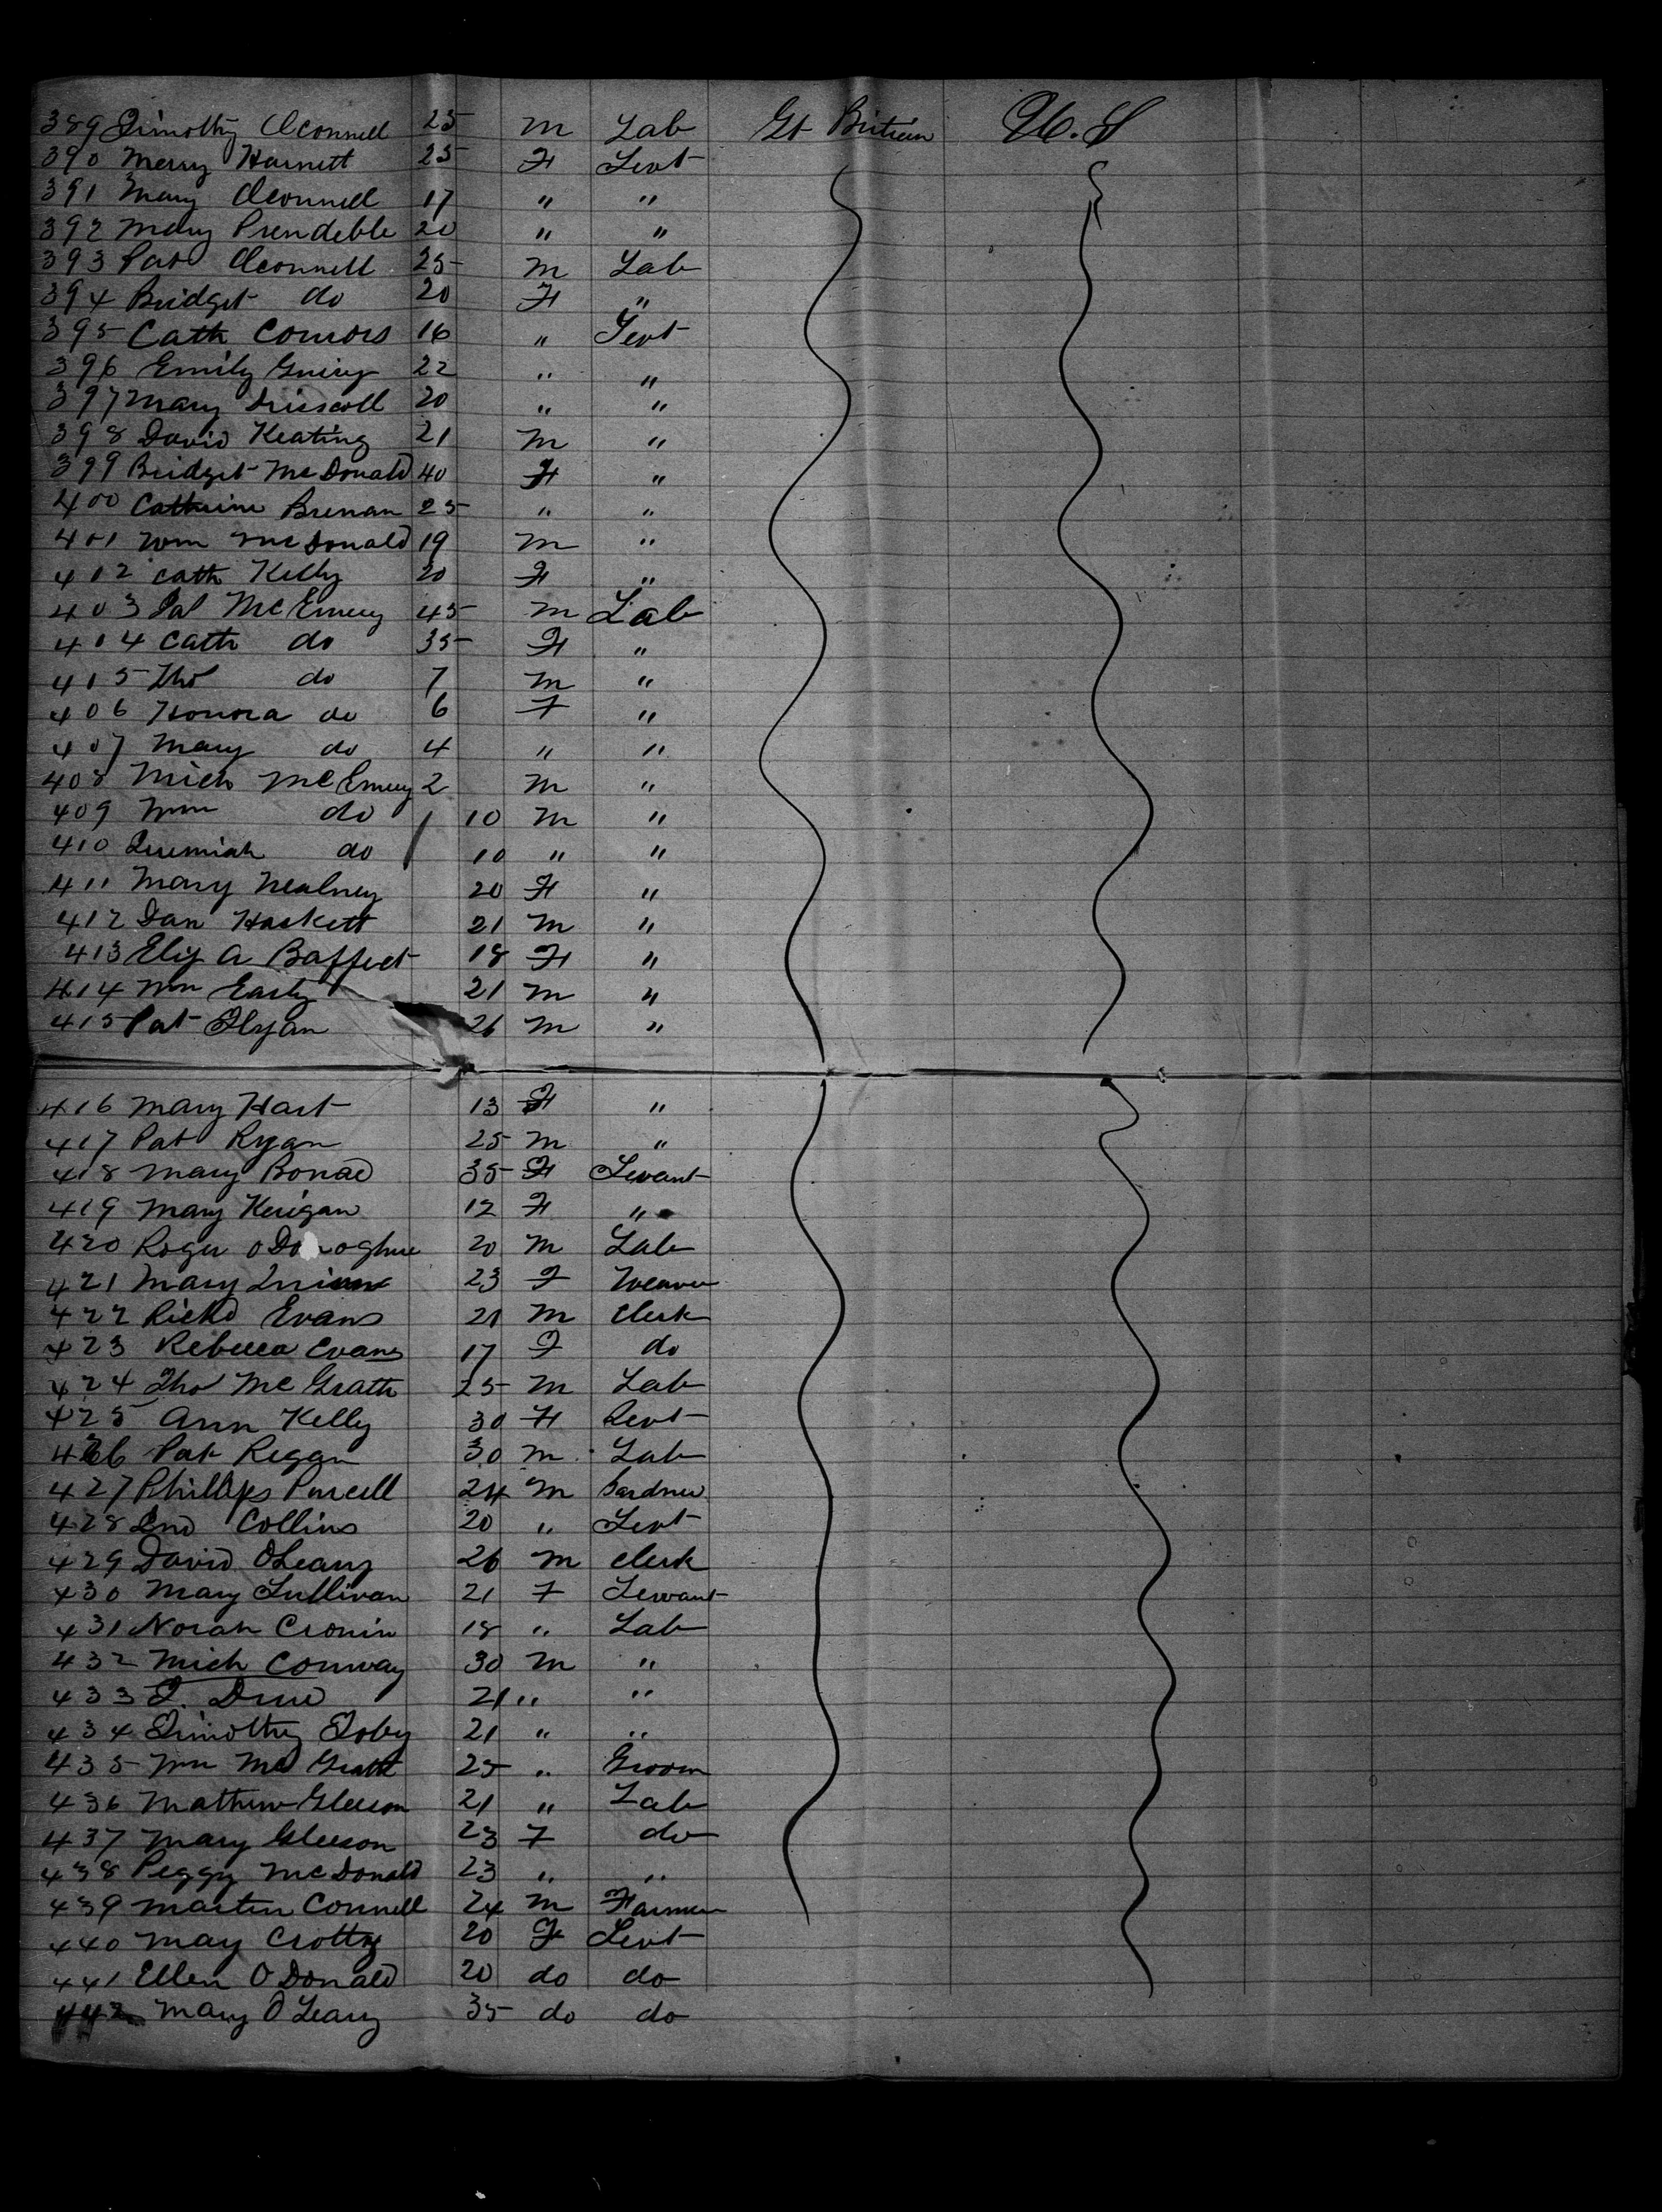 389 Timothy Oconnell 25 m Lab Gt Britain U.S
390 Merry Harnett 25 F Sevt
391 Mary Oconnell 17 " "
392 Mary Prendeble 20 " "
393 Pat Oconnell 25 m Lab
394 Bridget do 20 F "
395 Cath Connors 16 " Sevt
396 Emily Guiry 22 " "
397 Mary Driscoll 20 " "
398 David Keating 21 m "
399 Bridget McDonald 40 F "
400 Cathrine Brenan 25 " "
401 Wm McDonald 19 m "
402 Cath Kelly 20 F "
403 Pat McEmery 45 m Lab
404 Cath do 35 F "
405 Tho do 7 m "
406 Honora do 6 F "
407 Mary do 4 " "
408 Mich McEmery 2 m "
409 Wm do 10 m "
410 Jeremiah do 10 " "
411 Mary Nealney 20 F "
412 Dan Haskett 21 m "
413 Eliz A Baffect 18 F "
414 Wm Early 21 m "
415 Pat Flyan 26 m "
416 Mary Hart 13 F "
417 Pat Ryan 25 m "
418 Mary Bonae 35 F Sevant
419 Mary Kerigan 12 F "
420 Roger ODonoghue 20 m Lab
421 Mary 23 F Weaver
422 Richd Evans 21 m Clerk
423 Rebecca Evans 17 F do
424 Tho McGrath 25 m Lab
425 Ann Kelly 30 F Sevt
426 Pat Regan 30 m Lab
427 Phillips Purcell 24 m Gardner
428 Jno Collins 20 " Sevt
429 David OLeary 26 m Clerk
430 Mary Sullivan 21 F Sewant
431 Norah Cronin 18 " Lab
432 Mich Conway 30 m "
433 J. Drew 21 " "
434 Timothy Toby 21 " "
435 Wm McGrath 25 " Groom
436 Mathew Gleeson 21 " Lab
437 Mary Gleeson 23 F do
438 Peggy McDonald 23 " "
439 Martin Connell 24 m Farmer
440 May Crotty 20 F Sevt
441 Ellen ODonald 20 do do
442 Mary OLeary 35 do do